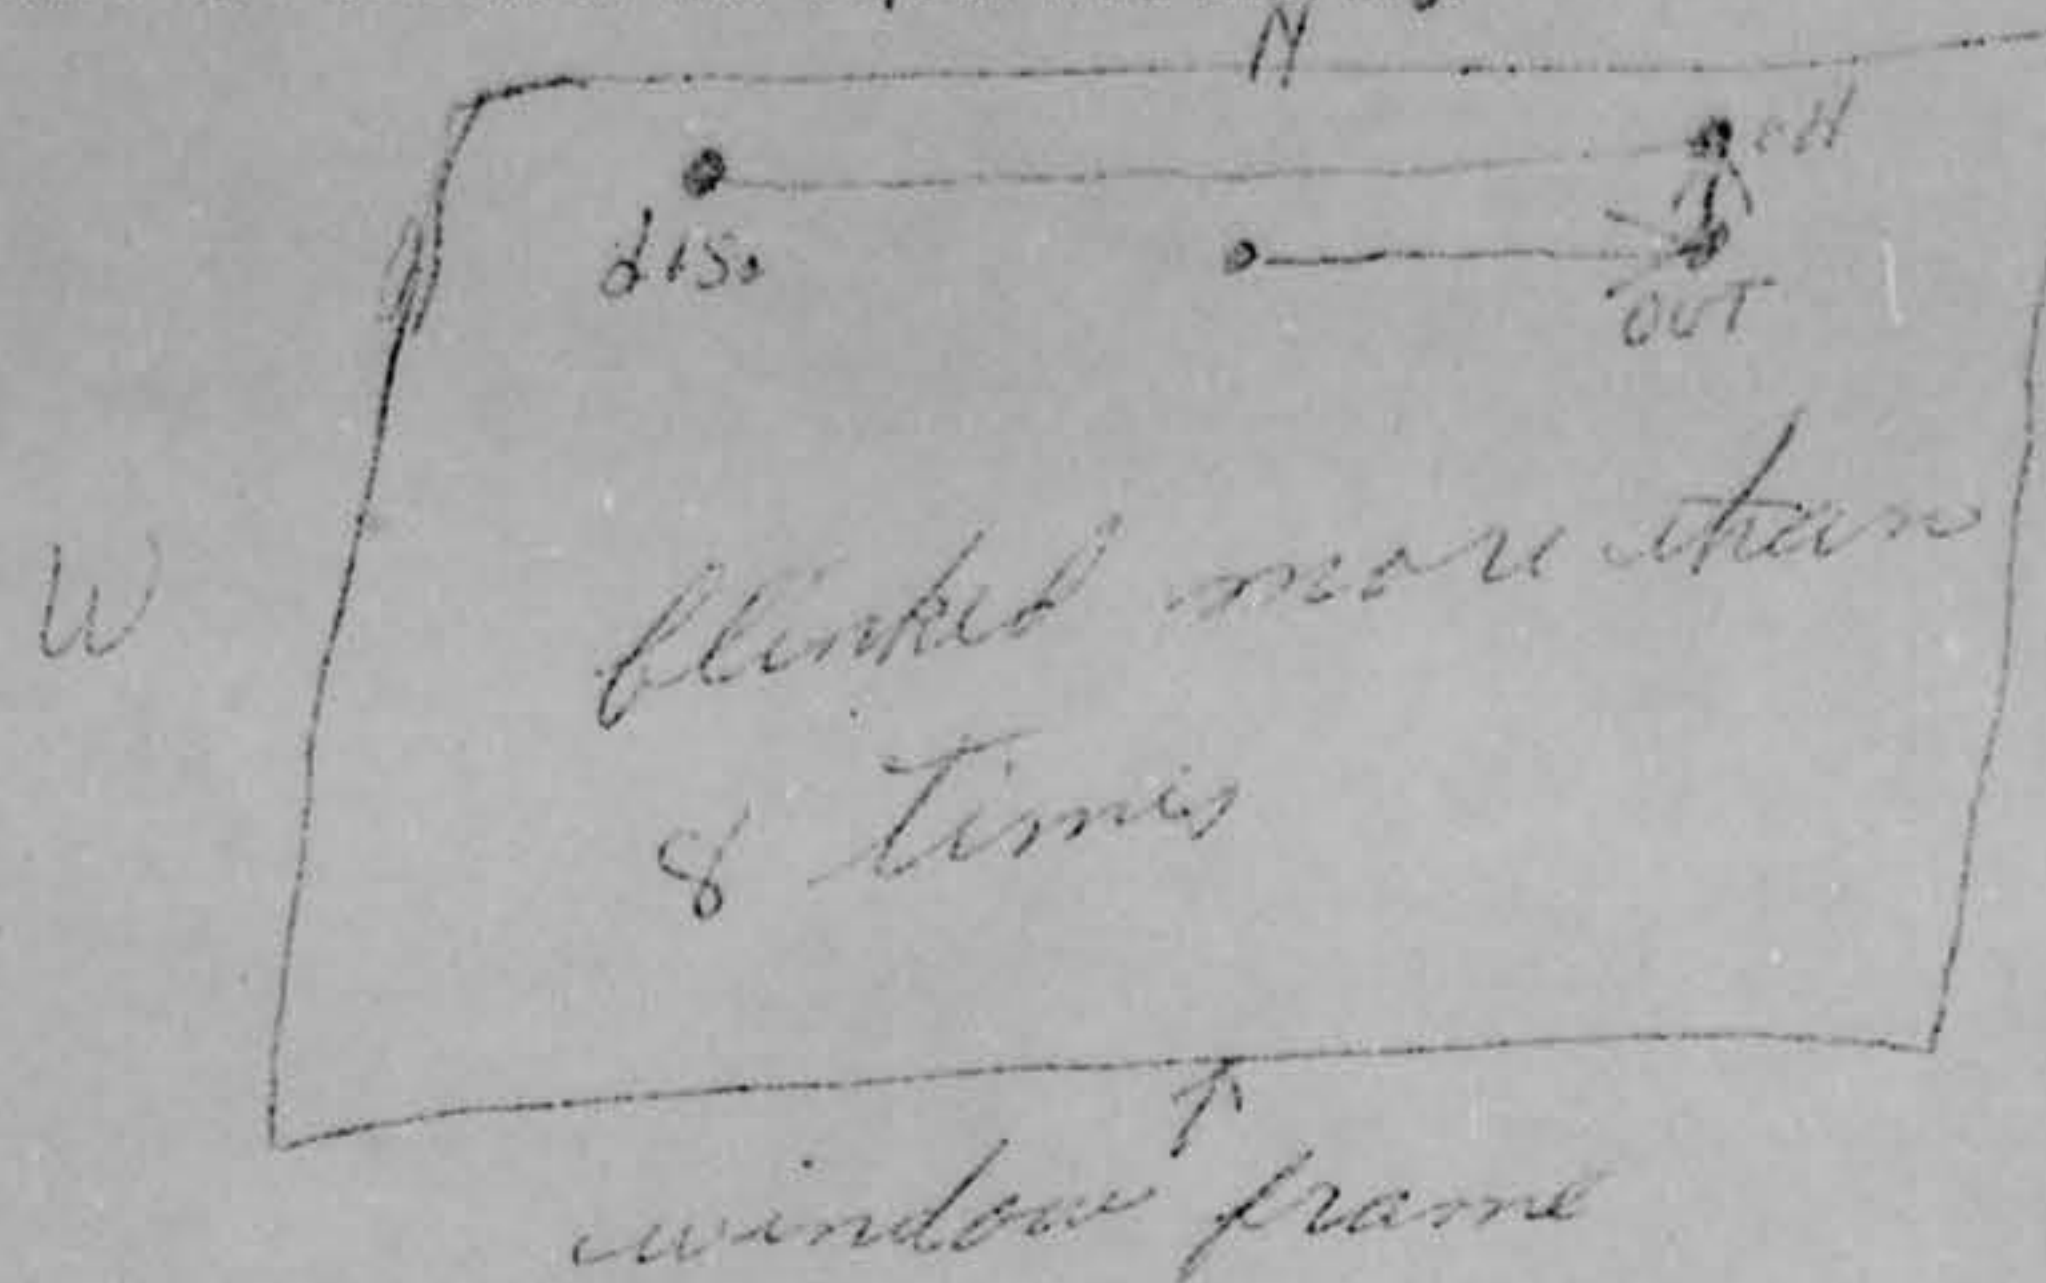 N
dis.
OUT
W
blinked more than
8 times
window frame